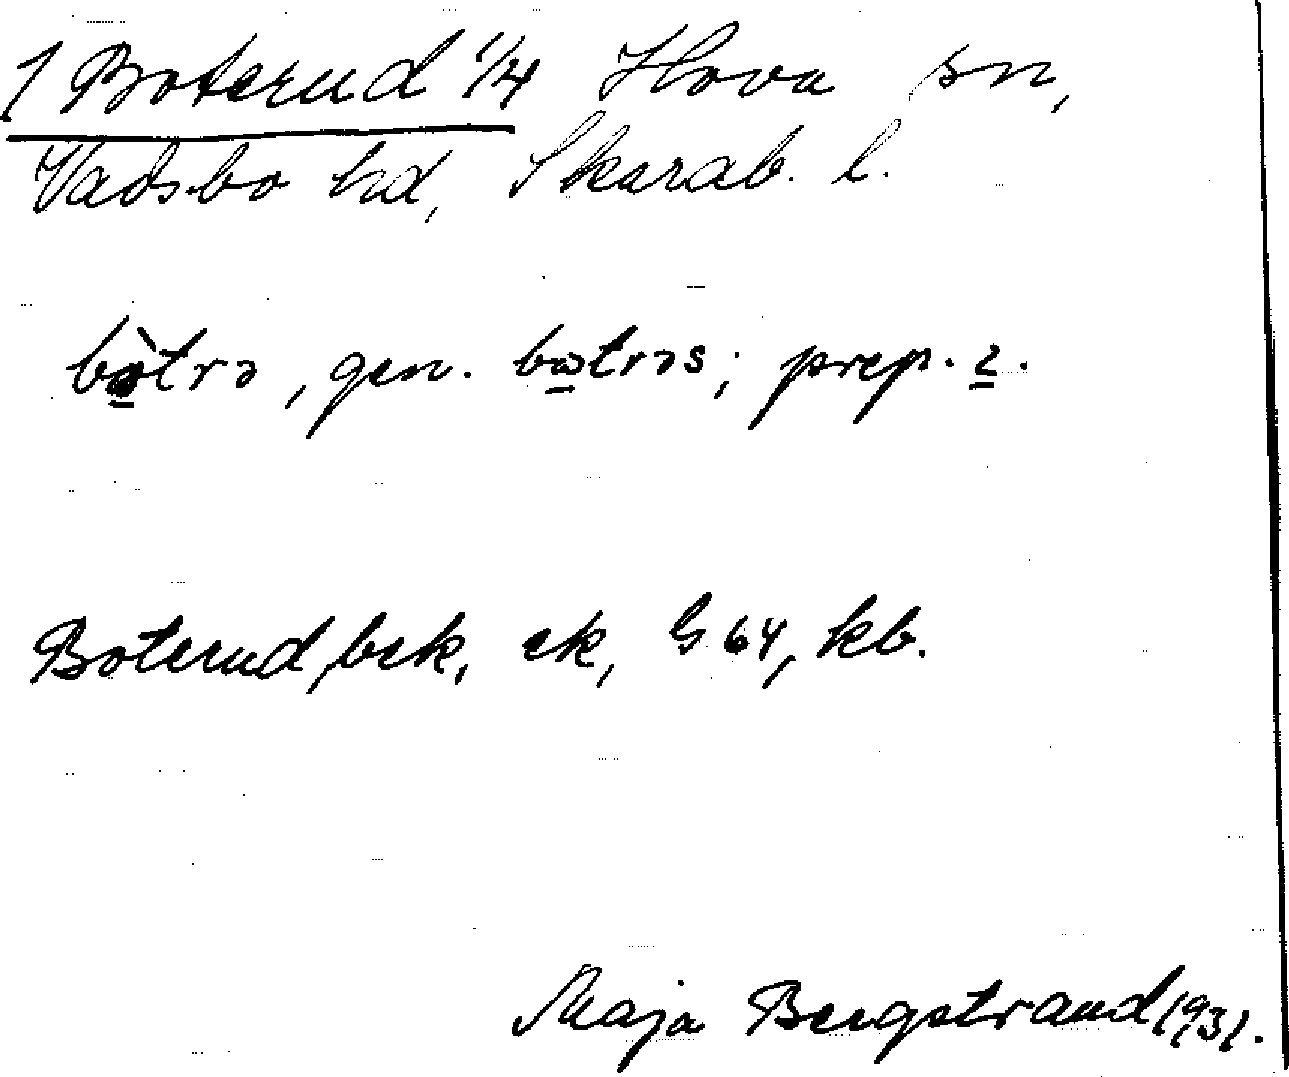 1 Boterud 1/4 Hova sn,
Vadsbo hd, Skarab. l.
bò̲trə, gen. bo̲trəs; prep. ɩ̲.
Boterud, bek, ek, G 64, kb.
Maja Bergstrand 1931.